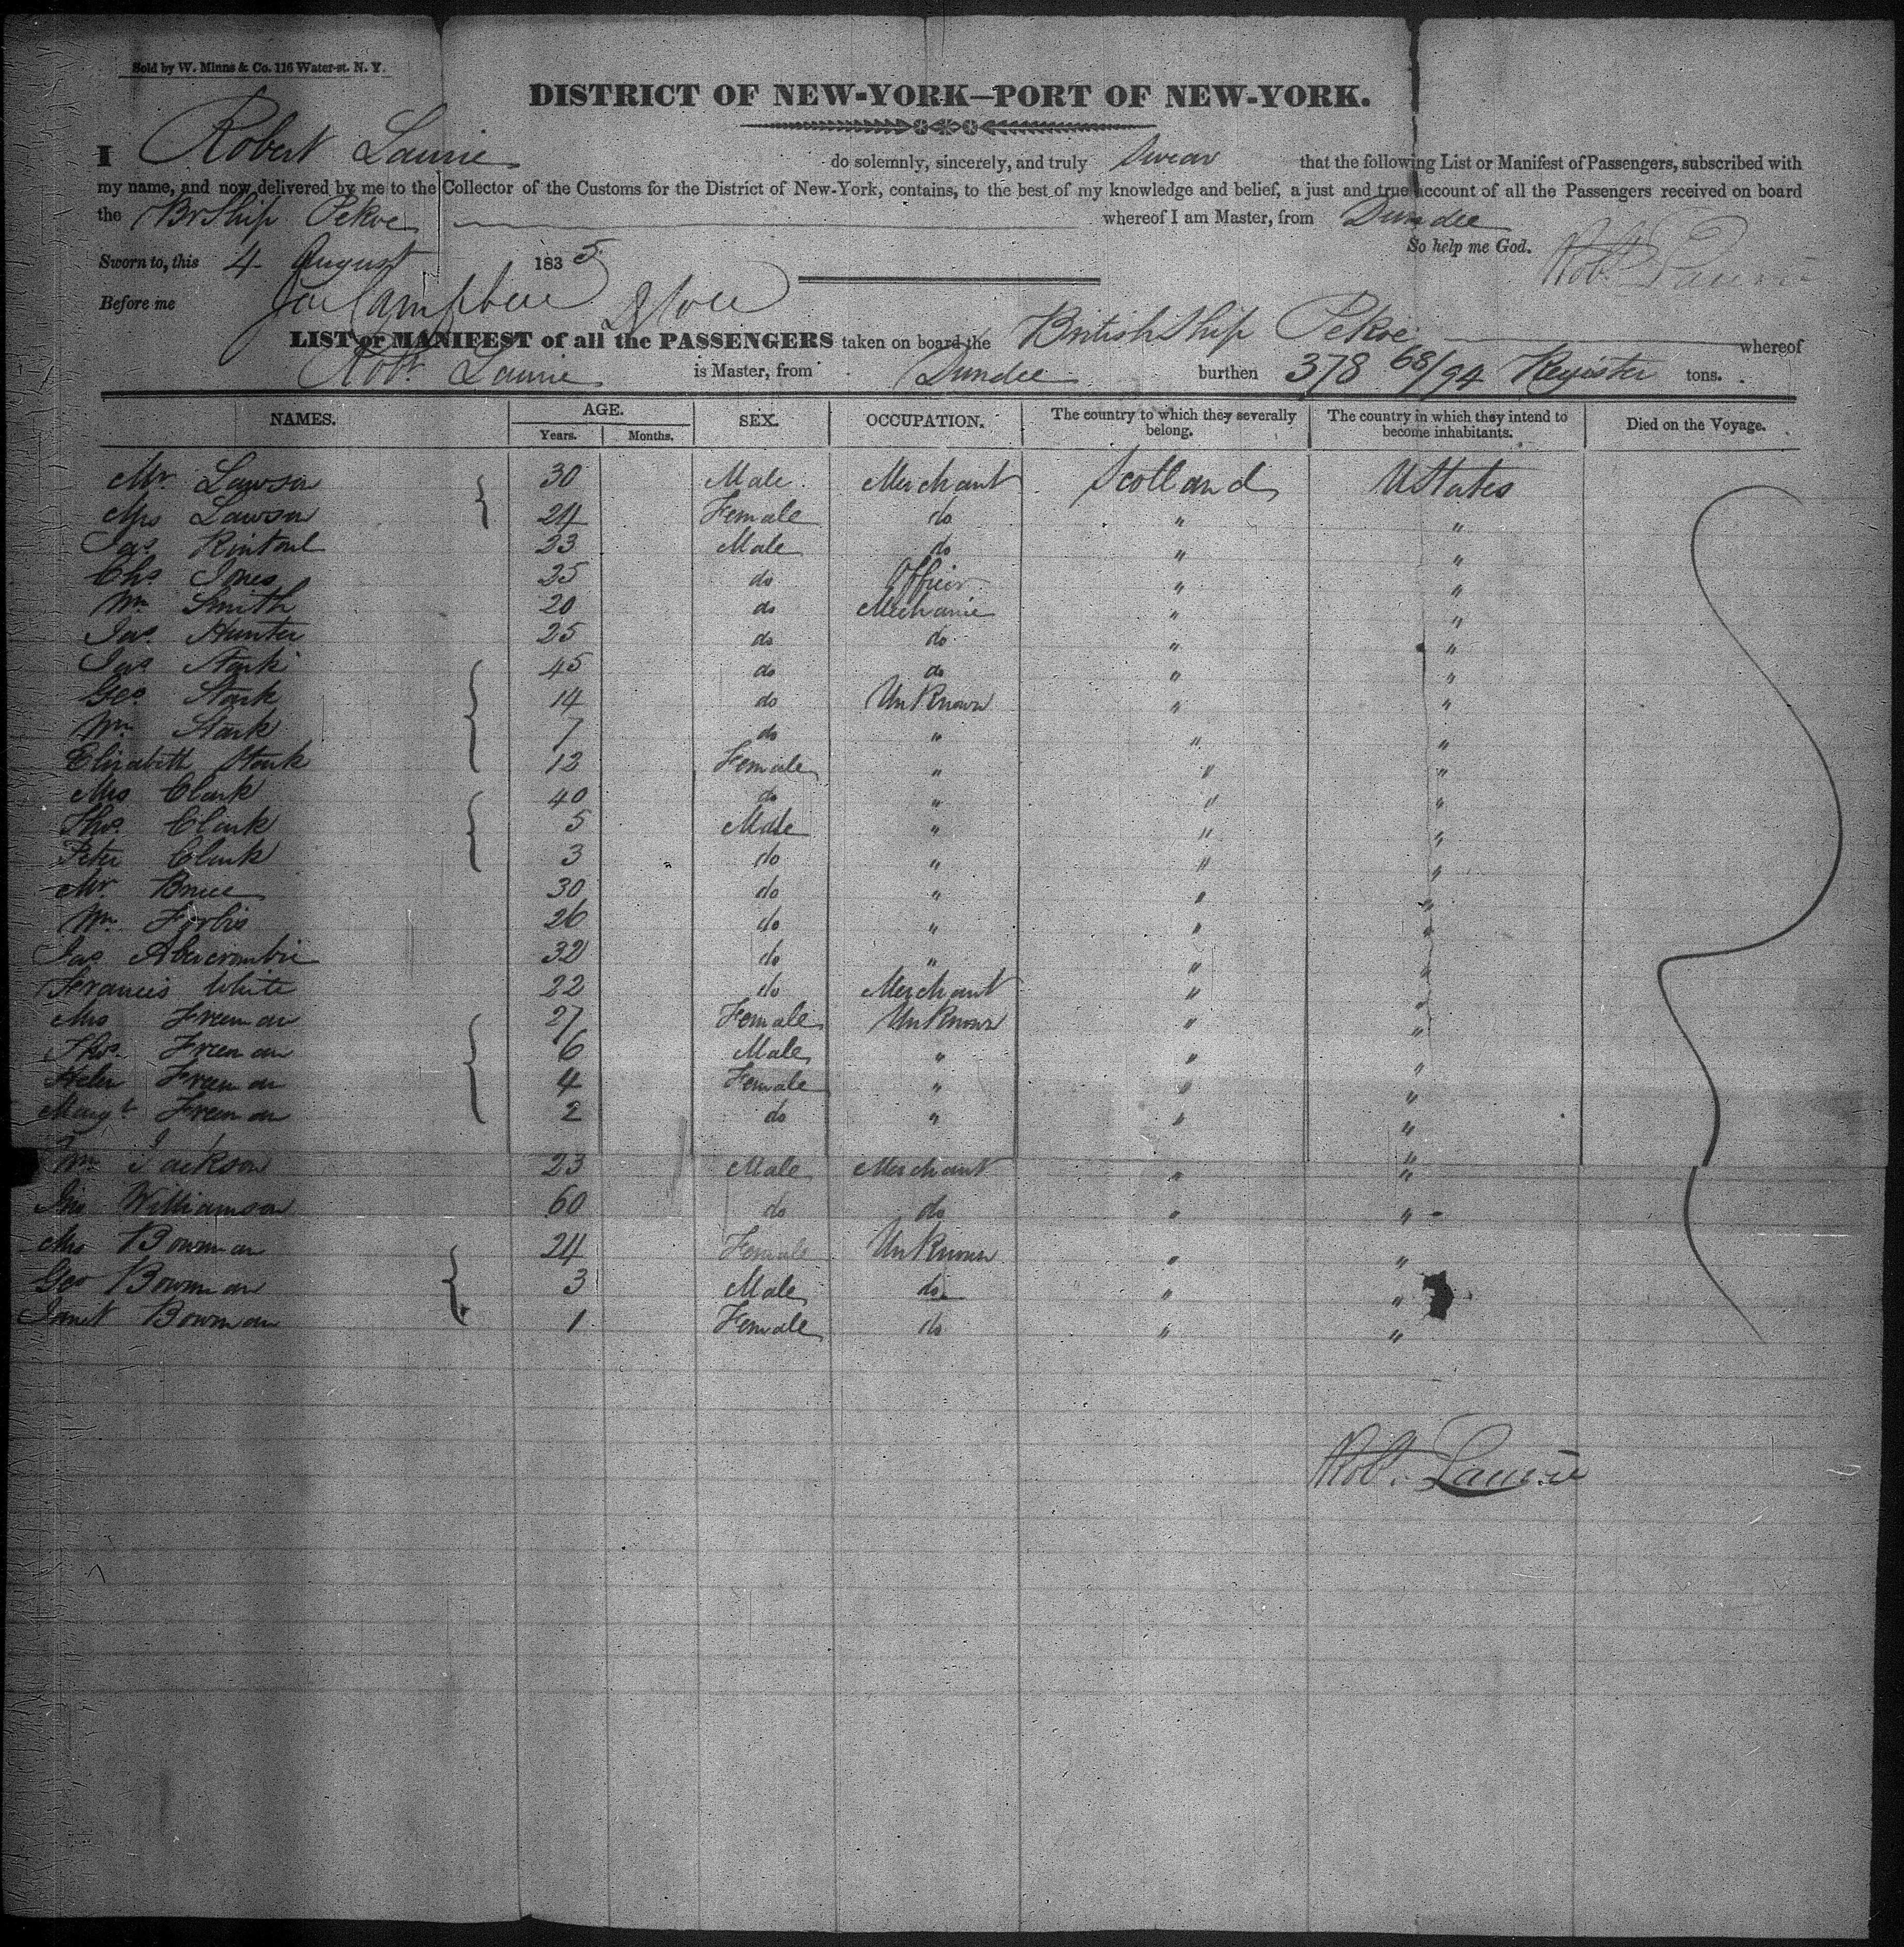 Sold by W. Minns & Co. 116 Water-st. N. Y.
DISTRICT OF NEW-YORK—PORT OF NEW-YORK.
I Robert Laurie do solemnly, sincerely, and truly Swear that the following List or Manifest of Passengers, subscribed with
my name, and now delivered by me to the Collector of the Customs for the District of New-York, contains, to the best of my knowledge and belief, a just and true account of all the Passengers received on board
the Br Ship Pekoe whereof I am Master, from Dundee
So help me God. Robt. Laurie
Sworn to, this 4 August 1835
Before me Campbell
LIST or MANIFEST of all the PASSENGERS taken on board the British Ship Pekoe whereof
Robt. Laurie is Master, from Dundee burthen 378 68/94 Register tons.
NAMES. AGE. SEX. OCCUPATION. The country to which they severally belong. The country in which they intend to become inhabitants. Died on the Voyage.
Years. Months.
Mr. Lawson 30 Male Merchant Scotland U States
Mrs Lawson 24 Female do " "
Jas. Rintoul 23 Male do " "
Chs. Jones 25 do Officer " "
Wm Smith 20 do Mechanic " "
Jas. Hunter 25 do do " "
Jas Stark 45 do do " "
Geo. Stark 14 do UnKnown " "
Wm. Stark 7 do " " "
Elizabeth Stark 12 Female " " "
Mrs Clark 40 do " " "
Thos. Clark 5 Male " " "
Peter Clark 3 do " " "
Mr. Bruce 30 do " " "
Wm. Forbis 26 do " " "
Jas Abercrombie 32 do " " "
Francis White 22 do Merchant " "
Mrs Freeman 27 Female UnKnown " "
Thos. Freeman 6 Male " " "
Helen Freeman 4 Female " " "
Margt Freeman 2 do " " "
Wm Jackson 23 Male Merchant " "
Jno Williamson 60 do do " "
Mrs Bowman 24 Female UnKnown " "
Geo Bowman 3 Male do " "
Janet Bowman 1 Female do " "
Robt. Laurie